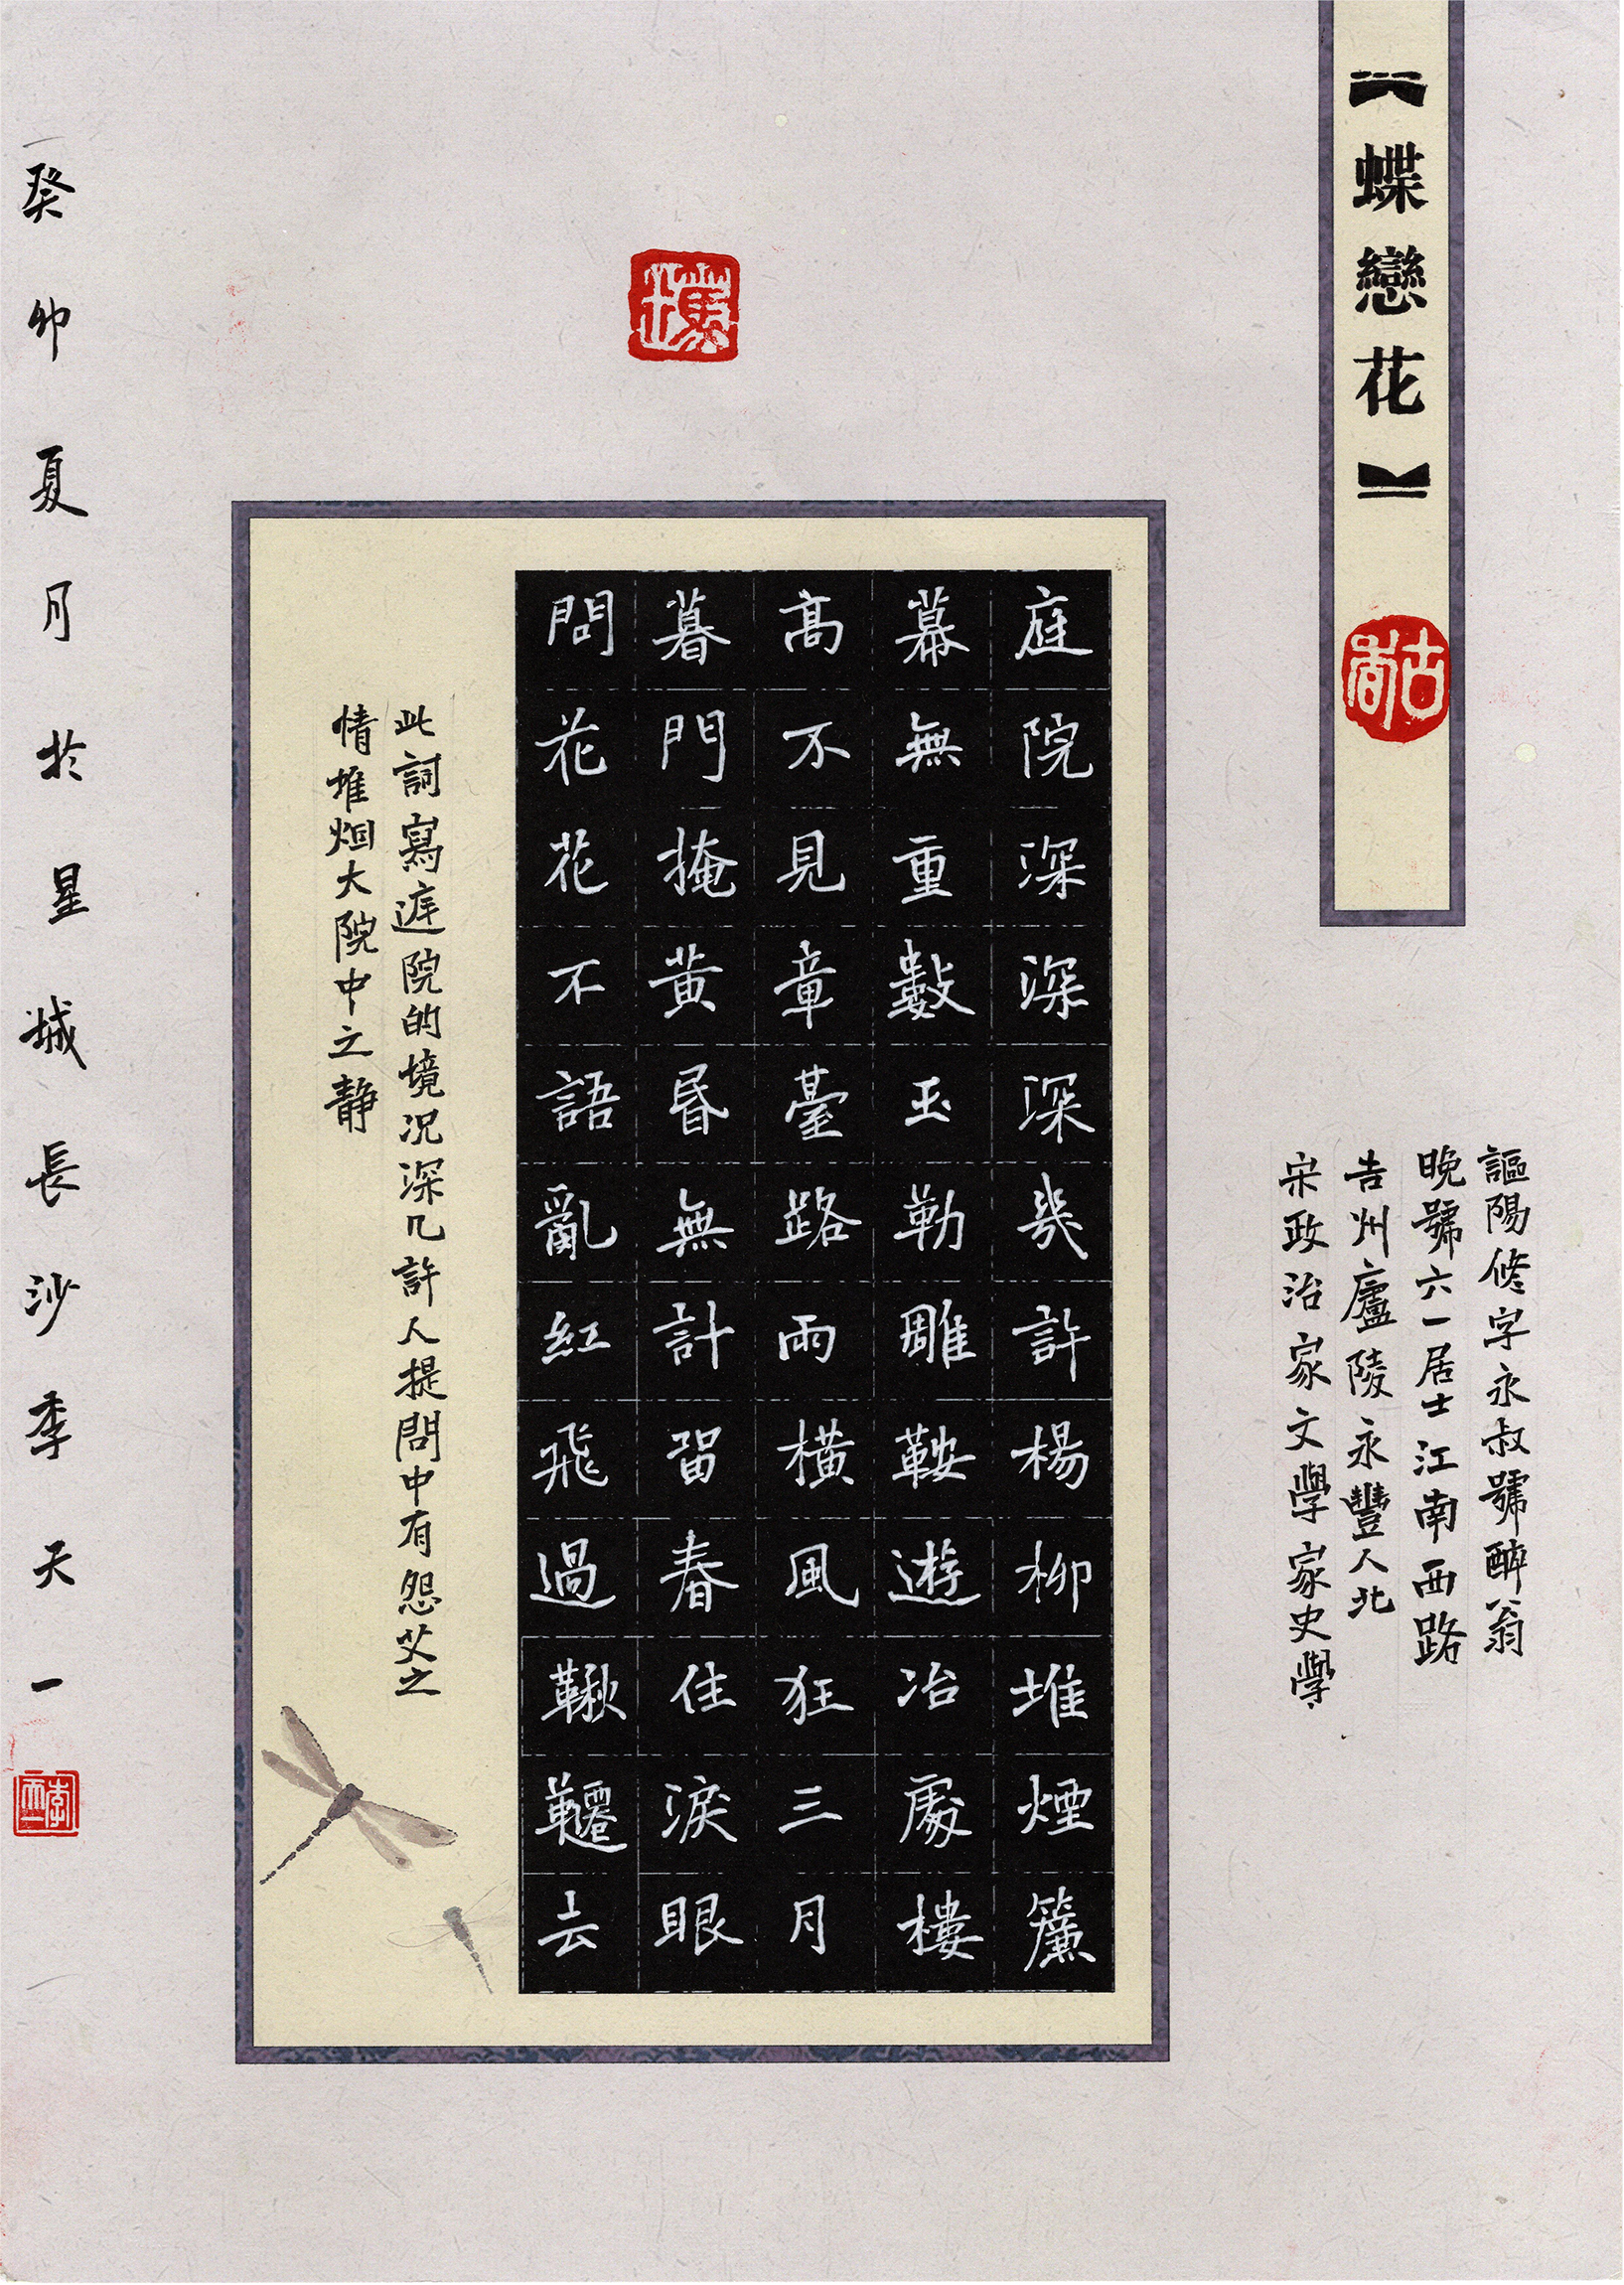 【蝶戀花】
謳陽修字永叔號醉翁
晚號六一居士江南西路
吉州廬陵永豐人北
宋政治家文學家史學
庭院深深深幾許楊柳堆煙簾
幕無重數玉勒雕鞍遊冶處樓
高不見章臺路雨橫風狂三月
暮門掩黃昏無計留春住淚眼
問花花不語亂紅飛過鞦韆去
此詞寫庭院的境况深几許人提問中有怨艾之
情堆烟大院中之静
癸卯夏月於星城長沙李天一
李天一